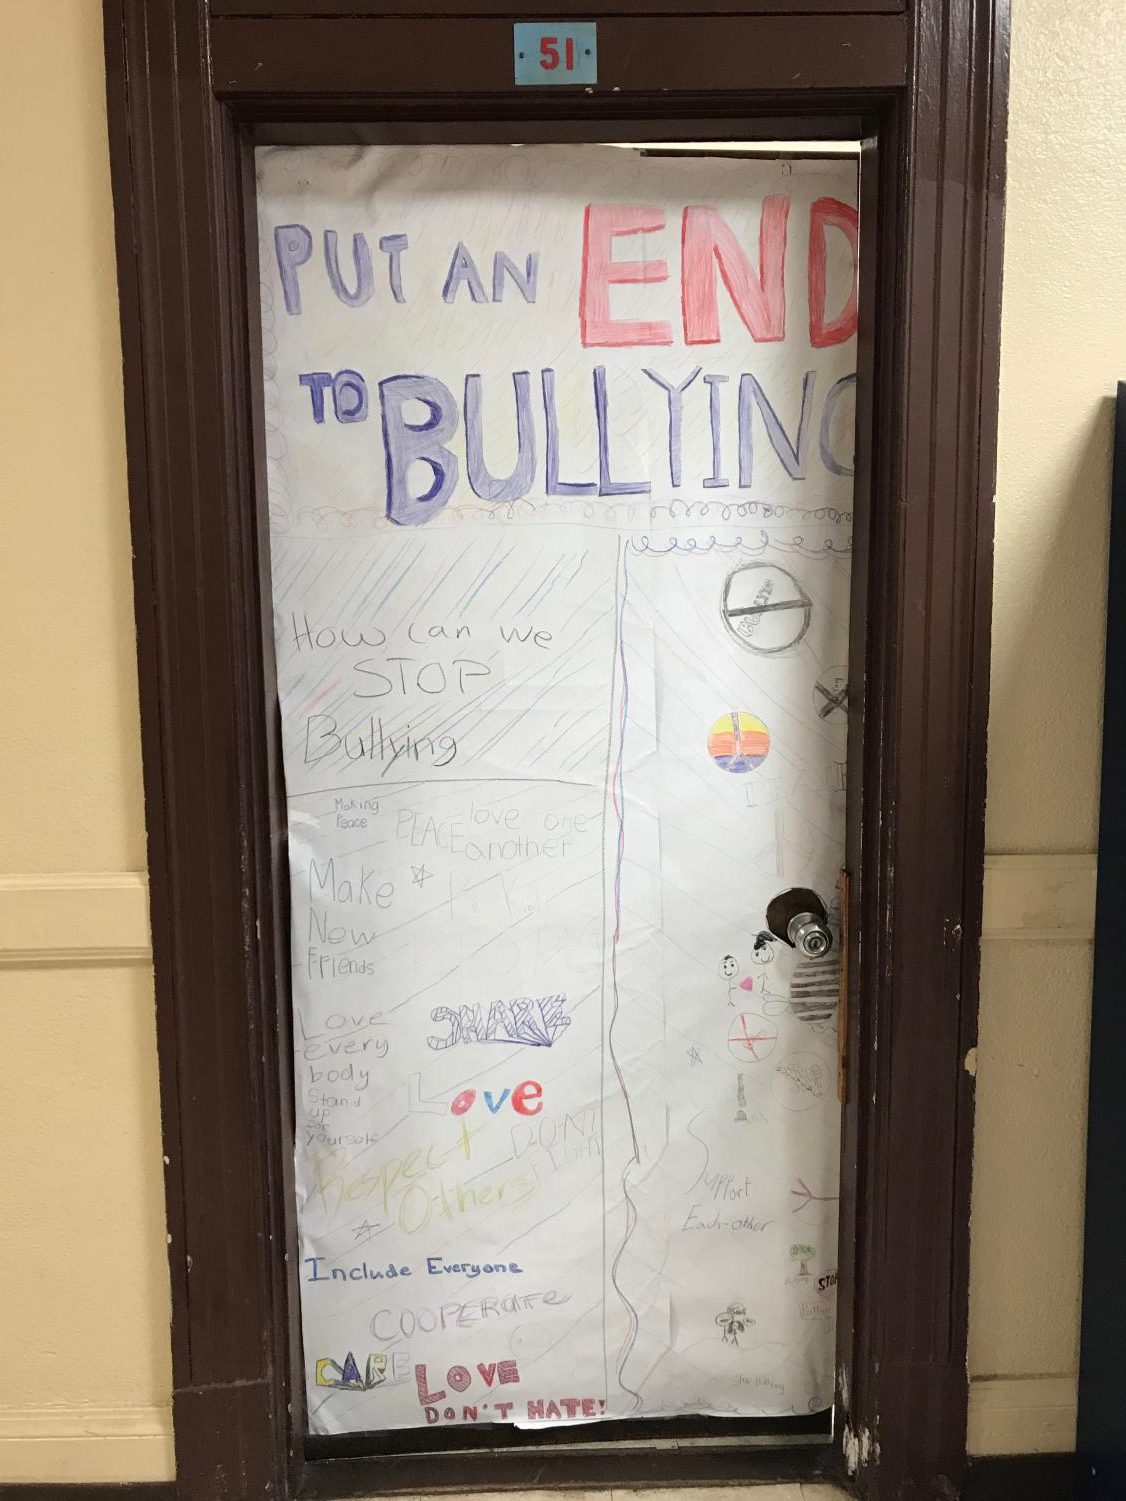 51
PUT AN END
TO BULLYING
How can we
STOP
Bullying
Making
Peace
PEACE
love one
another
Make
New
Friends
Be Kind
SHARE
Love
every
body
Stand
up
for
yourself
Love
DON'T
FIGHT
Respect
Others
Include Everyone
COOPERATE
CARE
LOVE
DON'T HATE!
Support
Each-other
STOP
Stop Bullying